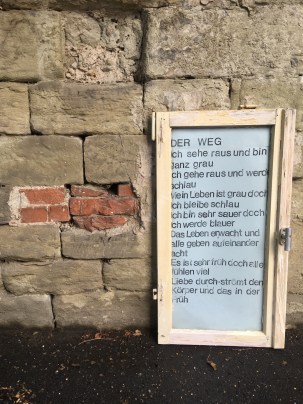 DER WEG
Ich sehe raus und bin
ganz grau
Ich gehe raus und werd
schlau
Mein Leben ist grau doch
ich bleibe schlau
Ich bin sehr sauer doch
ich werde blauer
Das Leben erwacht und
alle geben aufeinander
acht
Es ist sehr früh doch alle
fühlen viel
Liebe durch-strömt den
Körper und das in der
Früh